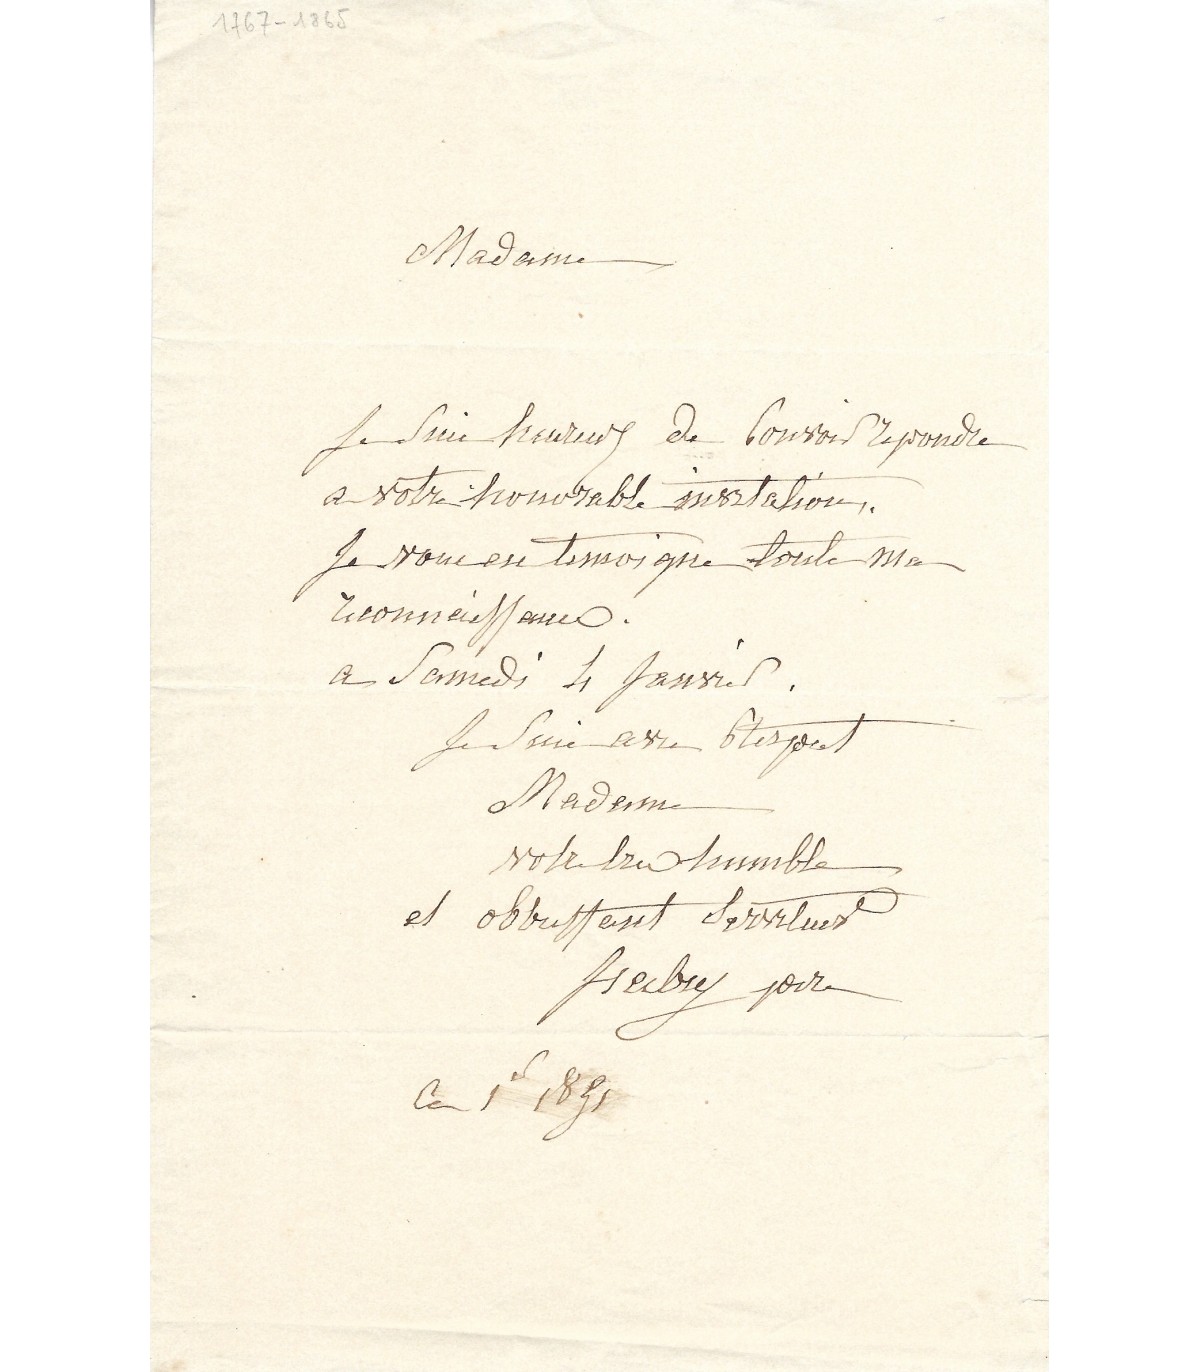 1767-1865
Madame
Je suis heureux de pouvoir repondre
a votre honorable invitation.
Je vous en temoigne toute ma
reconnaissance.
a Samedi 4 Janvier.
Je suis avec respect
Madame
votre tres humble
et obbeissant serviteur
Isabey pere
Ce 1er 1851